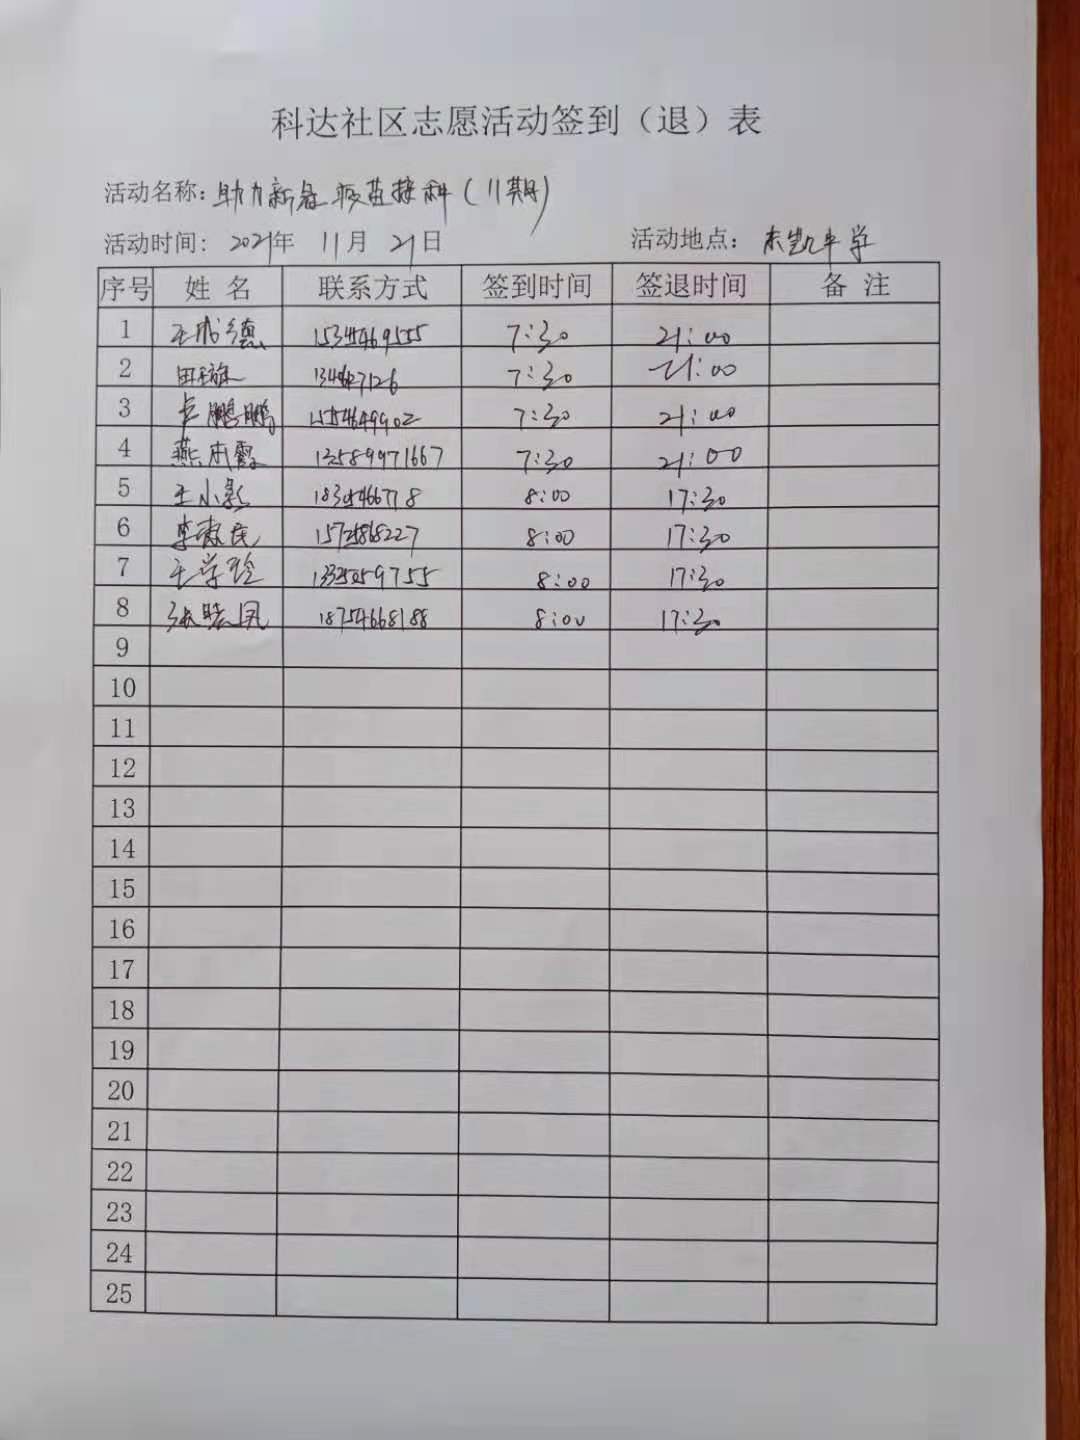 科达社区志愿活动签到（退）表
活动名称：助力新冠疫苗接种（11期）
活动时间：2021年 11月 21日 活动地点：东凯中学
序号 姓 名 联系方式 签到时间 签退时间 备 注
1 王成德 7:30 21:00
2 田 7:30 21:00
3 卢鹏鹏 7:30 21:00
4 燕本霞 13589971667 7:30 21:00
5 王小彩 8:00 17:30
6 李 15725868227 8:00 17:30
7 王学玲 8:00 17:30
8 张晓凤 18754668188 8:00 17:30
9
10
11
12
13
14
15
16
17
18
19
20
21
22
23
24
25